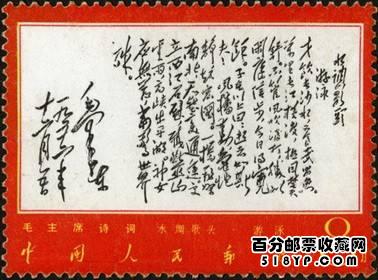 水调歌头
游泳
才饮长沙水又食武昌鱼
万里长江横渡极目楚
天舒不管风吹浪打胜似
闲庭信步今日得宽
馀子在川上曰逝者如斯
夫 风樯动龟蛇
静起宏图一桥飞架
南北天堑变通途更
立西江石壁截断巫山
云雨高峡出平湖神女
应无恙当惊世界
殊
毛泽东
一九五六年
十二月五日
毛主席诗词 水调歌头 游泳
中国人民邮
百分邮票收藏网
518YP.com